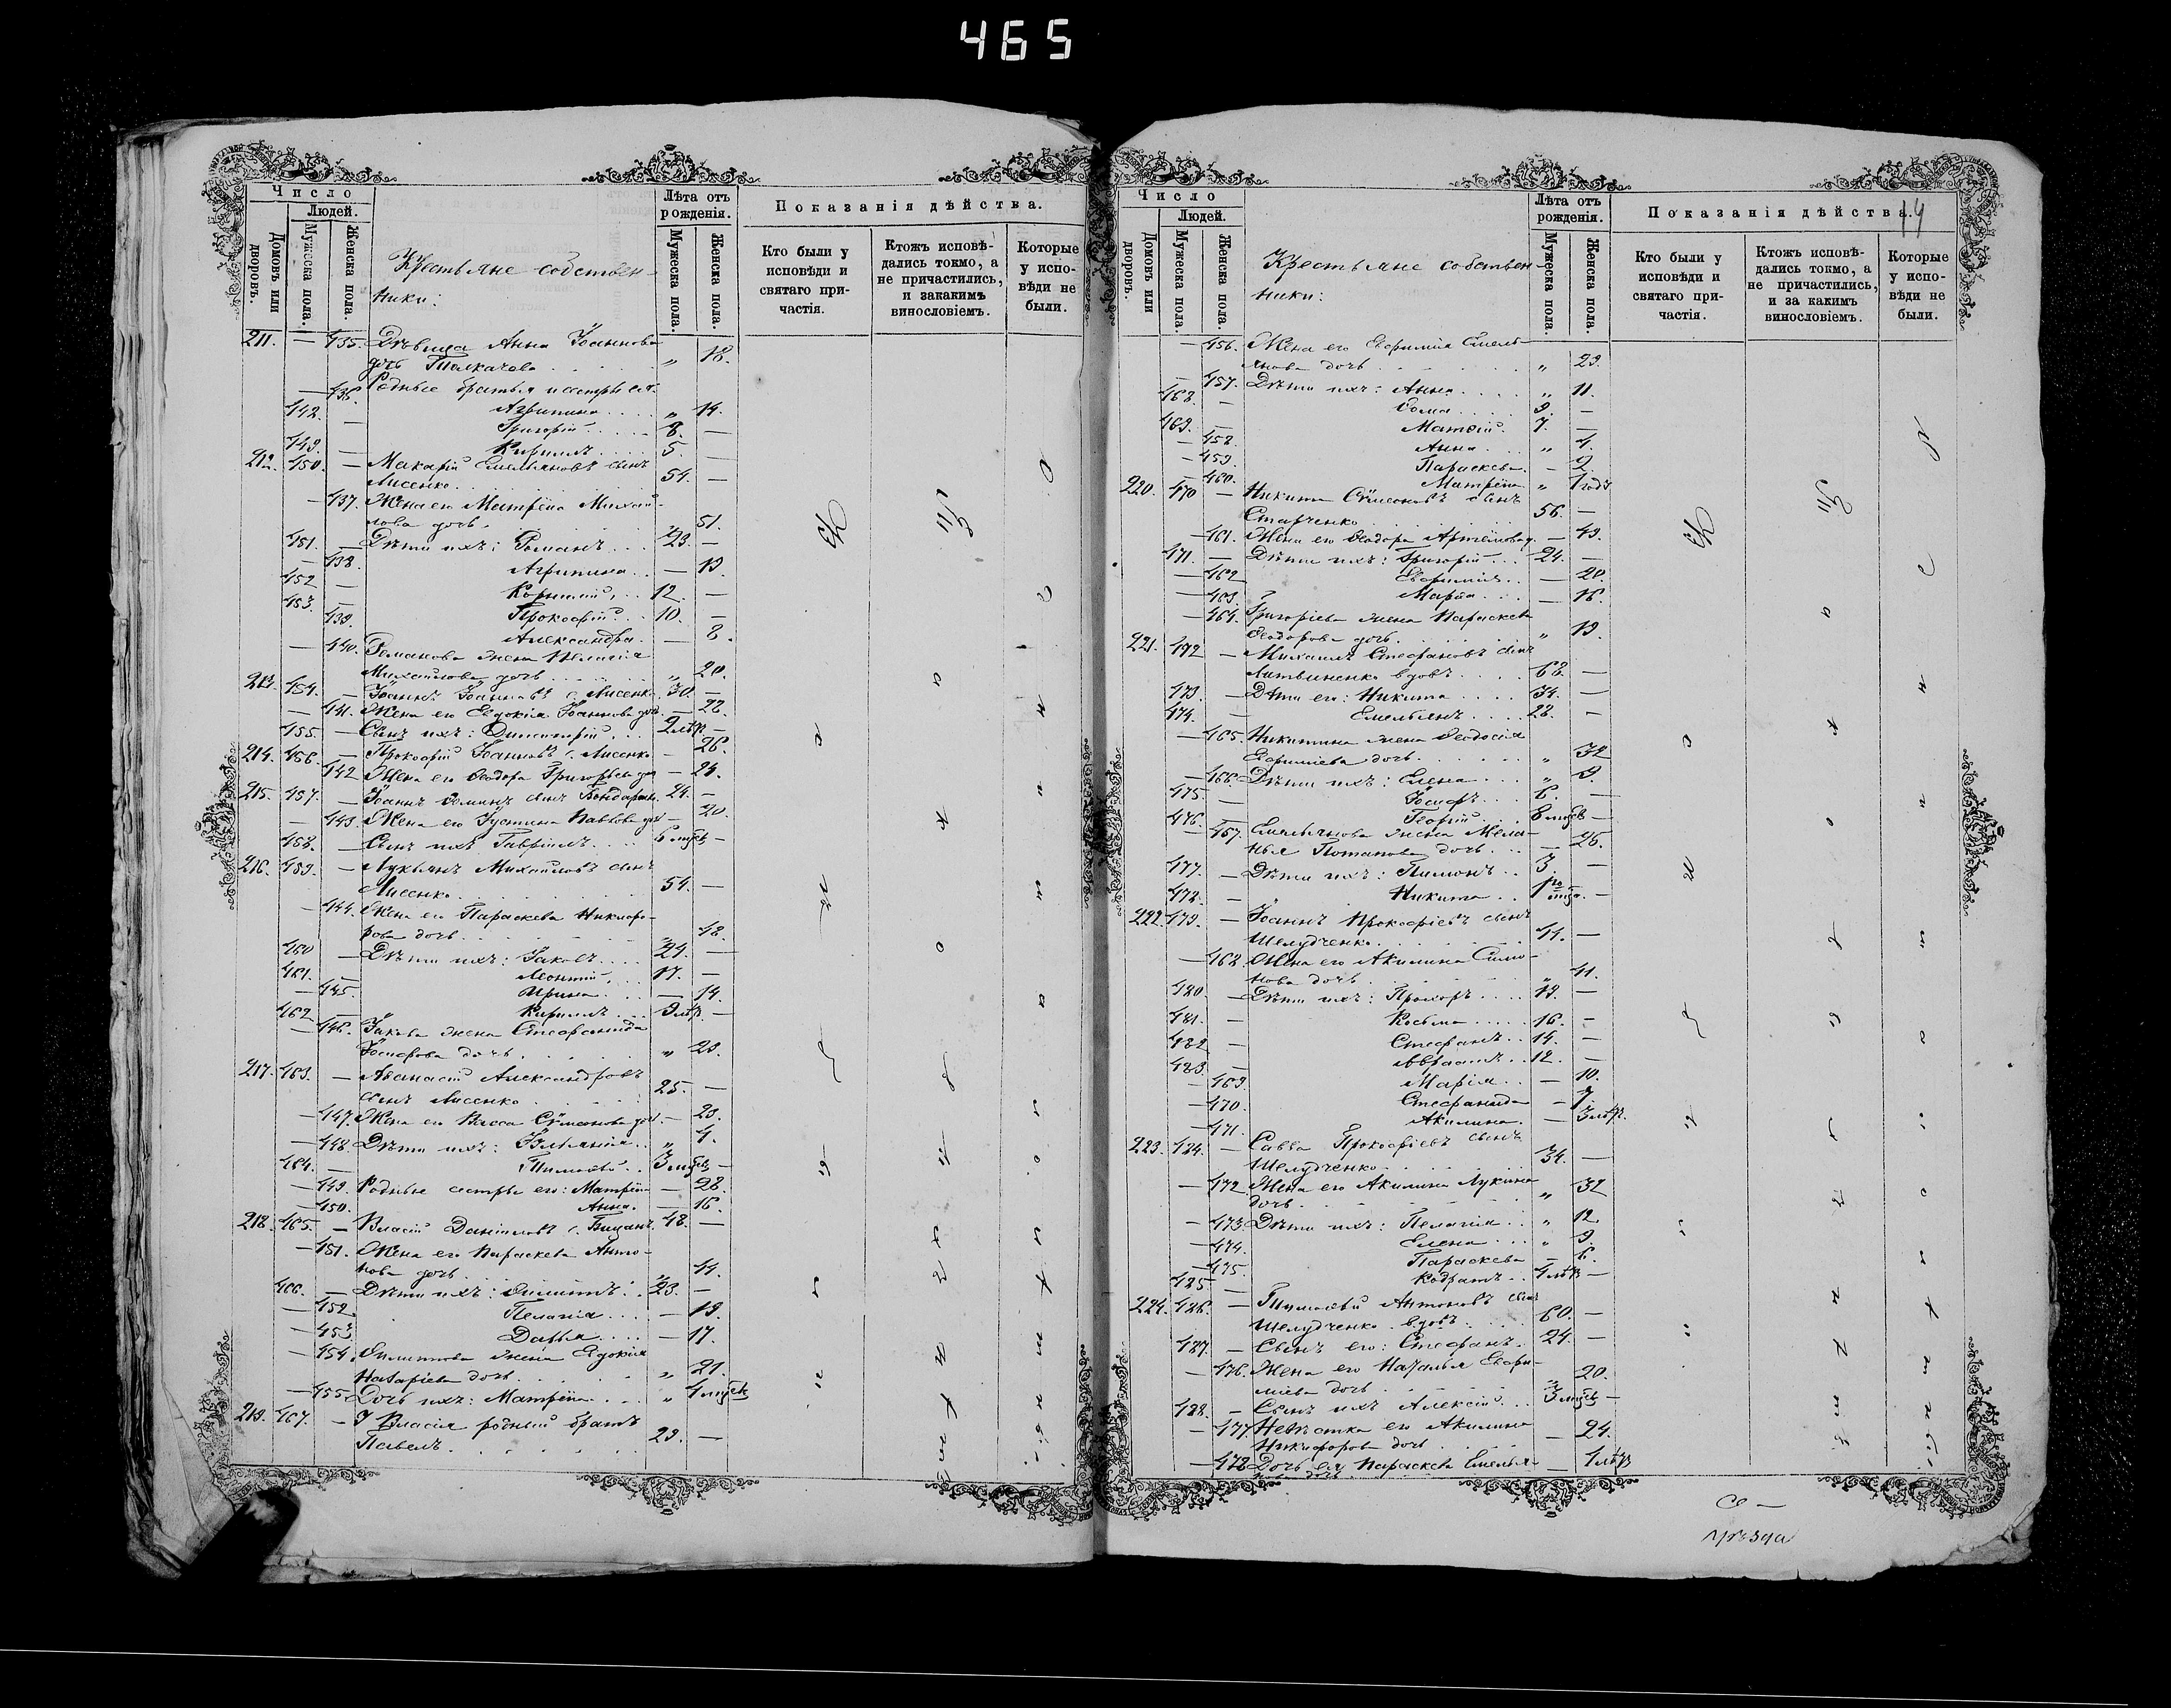 465
Число
Людей.
Домовъ или дворовъ.
Мужеска пола.
Женска пола.
Лѣта отъ рожденія.
Мужеска пола.
Женска пола.
Показанія дѣйства.
Кто были у исповѣди и святаго причастія.
Ктожъ исповѣдались токмо, а не причастились, и закакимъ винословіемъ.
Которые у исповѣди не были.
Крестьяне собствен-
ники:
211. — 435. Дѣвица Анна Іоаннова
дочь Толкачева „ 18.
Родные братья и сестры ея:
— 436. Агрипина „ 14.
442. — Григорій 8. —
449. — Кириллъ 5. —
212. 450. — Макарій Емельяновъ сынъ
Лисенко 54. —
— 437. Жена его Матрена Михай-
лова дочь „ 51.
451. — Дѣти ихъ: Романъ 23. —
— 438. Агрипина — 19.
452 — Корнилій 12. —
453. — Прокофій 10. —
439. Александра — 8.
— 440. Романова жена Пелагія
Михайлова дочь „ 20.
213. 454. — Іоаннъ Іоанновъ с. Лисенко 30. —
— 441. Жена его Евдокія Іоаннова доч. — 22.
455. — Сынъ ихъ: Димитрій 2 лѣтъ —
214. 456. — Прокофій Іоанновъ с. Лисенко 26.
442 Жена его Ѳеодора Григорьева доч — 24.
215. 457. — Іоаннъ Ѳоминъ сынъ Бондаренк. 24. —
— 443. Жена его Іустина Павлова доч — 20.
458. — Сынъ ихъ Гавріилъ 6 мѣс. —
216. 459. — Лукьянъ Михайловъ сынъ
Лисенко 54. —
— 444. Жена его Параскева Никифо-
рова дочь „ 48.
460 — Дѣти ихъ: Іаковъ 24. —
461. — Леонтій 17. —
— 445. Ирина — 14.
462 — Кириллъ 9 лѣт. —
— 446. Іакова жена Стефанида
Іосифова дочь „ 23.
217. 463. — Аѳанасій Александровъ
сынъ Лисенко 25. —
— 447. Жена его Васса Сѵмеонова доч. — 23.
— 448. Дѣти ихъ: Іуліанія „ 4.
464. — Тимоѳей 3 мѣс. —
— 449. Родные сестры его: Матрена — 28.
— 450. Анна. — 16.
218. 465. — Власій Даніиловъ с. 48. —
— 451. Жена его Параскева Анто-
нова дочь „ 44.
466. — Дѣти ихъ: Филиппъ 23. —
— 452. Пелагія — 19.
— 453 Дарья — 17.
— 454. Филиппова жена Евдокія
Назаріева дочь „ 21.
— 455. Дочь ихъ: Матрена „ 4 мѣс.
219. 467. — Власія родный братъ
Павелъ 29. —
Число
Людей.
Домовъ или дворовъ.
Мужеска пола.
Женска пола.
Лѣта отъ рожденія.
Мужеска пола.
Женска пола.
Показанія дѣйства.
14
Кто были у исповѣди и святаго причастія.
Ктожъ исповѣдались токмо, а не причастились, и за какимъ винословіемъ.
Которые у исповѣди не были.
Крестьяне собствен-
ники:
— 456. Жена его Евфимія Емель-
янова дочь „ 23.
— 457. Дѣти ихъ: Анна „ 11.
468. — Ѳома 9. —
469. — Матѳій 7. —
— 458. Анна „ 4.
— 459. Параскева — 2.
— 460. Матрена „ 1 годъ
220. 470 — Никита Сѵмеоновъ сынъ
Старченко 56. —
— 461. Жена его Ѳеодора Артемова д. — 49.
471. — Дѣти ихъ: Григорій 24. —
— 462 Евфимія — 20.
— 463. Марія — 16.
— 464. Григоріева жена Параскева
Ѳеодорова дочь „ 19.
221. 472 — Михаилъ Стефановъ сынъ
Литвиненко вдовъ 68. —
473. — Дѣти его: Никита 34. —
474. — Емельянъ 28. —
— 465. Никитина жена Ѳеодосія
Евфиміева дочь „ 32
— 466. Дѣти ихъ: Елена „ 9.
475. — Іосифъ 6. —
476. — Георгій 8 мѣс. —
— 467. Емельянова жена Мела-
нья Потапова дочь — 26.
477. — Дѣти ихъ: Пименъ 3. —
478. — Никита —
222. 479. — Іоаннъ Прокофіевъ сынъ
Шелудченко 44. —
— 468. Жена его Акилина Симо-
нова дочь „ 41.
480. — Дѣти ихъ: Прохоръ 19. —
481. — Косьма 16. —
482 — Стефанъ 14. —
483. — Авраамъ 12. —
— 469. Марія — 10.
— 470. Стефанида — 7.
— 471. Акилина — 3 лѣт.
223. 484. — Савва Прокофіевъ сынъ
Шелудченко 34. —
— 472 Жена его Акилина Лукина
дочь „ 32
— 473. Дѣти ихъ: Пелагія „ 12.
— 474. Елена „ 9.
— 475. Параскева — 6.
485 — Кодратъ 4 лѣт. —
224. 486. — Тимоѳей Антоновъ сынъ
Шелудченко вдовъ 60. —
487. — Сынъ его: Стефанъ 24. —
— 476. Жена его Наталья Евфи-
міева дочь „ 20.
488. — Сынъ ихъ Алексій 3 мѣс. —
— 477. Невѣстка его Акилина
Никифорова дочь — 24.
— 478 Дочь ея Параскева Емелья-
нова дочь — 4 лѣт
уѣзда